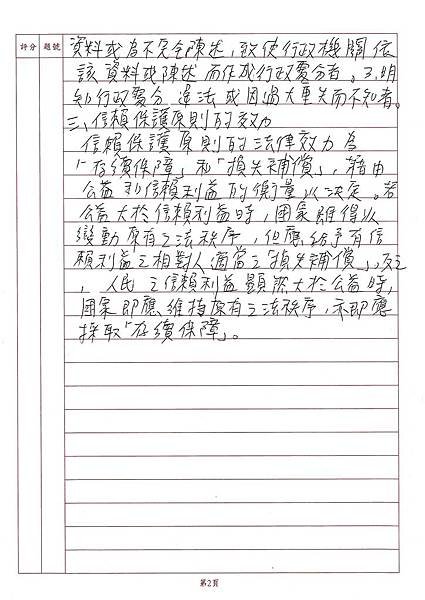 評分 題號
資料或為不完全陳述,致使行政機關依
該資料或陳述而作成行政處分者。3.明
知行政處分違法或因過大重失而不知者。
三、信賴保護原則的效力
信賴保護原則的法律效力為
「存續保障」和「損失補償」,藉由
公益和信賴利益的衡量以決定。若
公益大於信賴利益時,國家雖得以
變動原有之法秩序,但應給予有信
賴利益之相對人適當之「損失補償」,反之
,人民之信賴利益顯然大於公益時,
國家即應維持原有之法秩序,亦即應
採取「存續保障」。
第2頁